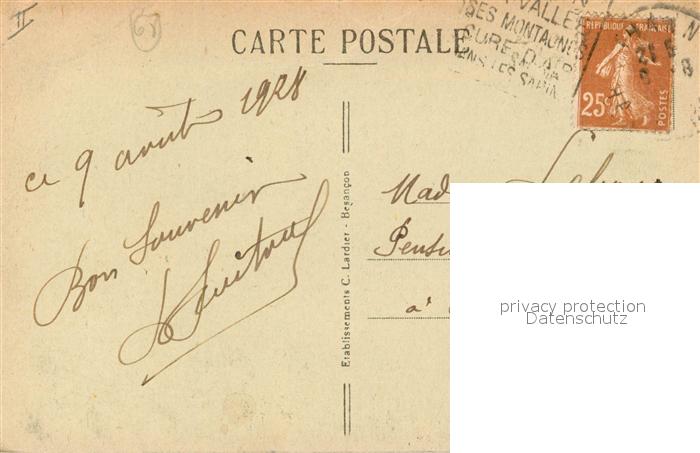 II
68
CARTE POSTALE
VALLEE
SES MONTAGNES
CURE D'AIR
DANS LES SAPINS
REPUBLIQUE FRANÇAISE
25c
POSTES
ce 9 août 1928
Bon Souvenir
Etablissements C. Lardier - Besançon
Mad
Pensi
à
privacy protection
Datenschutz